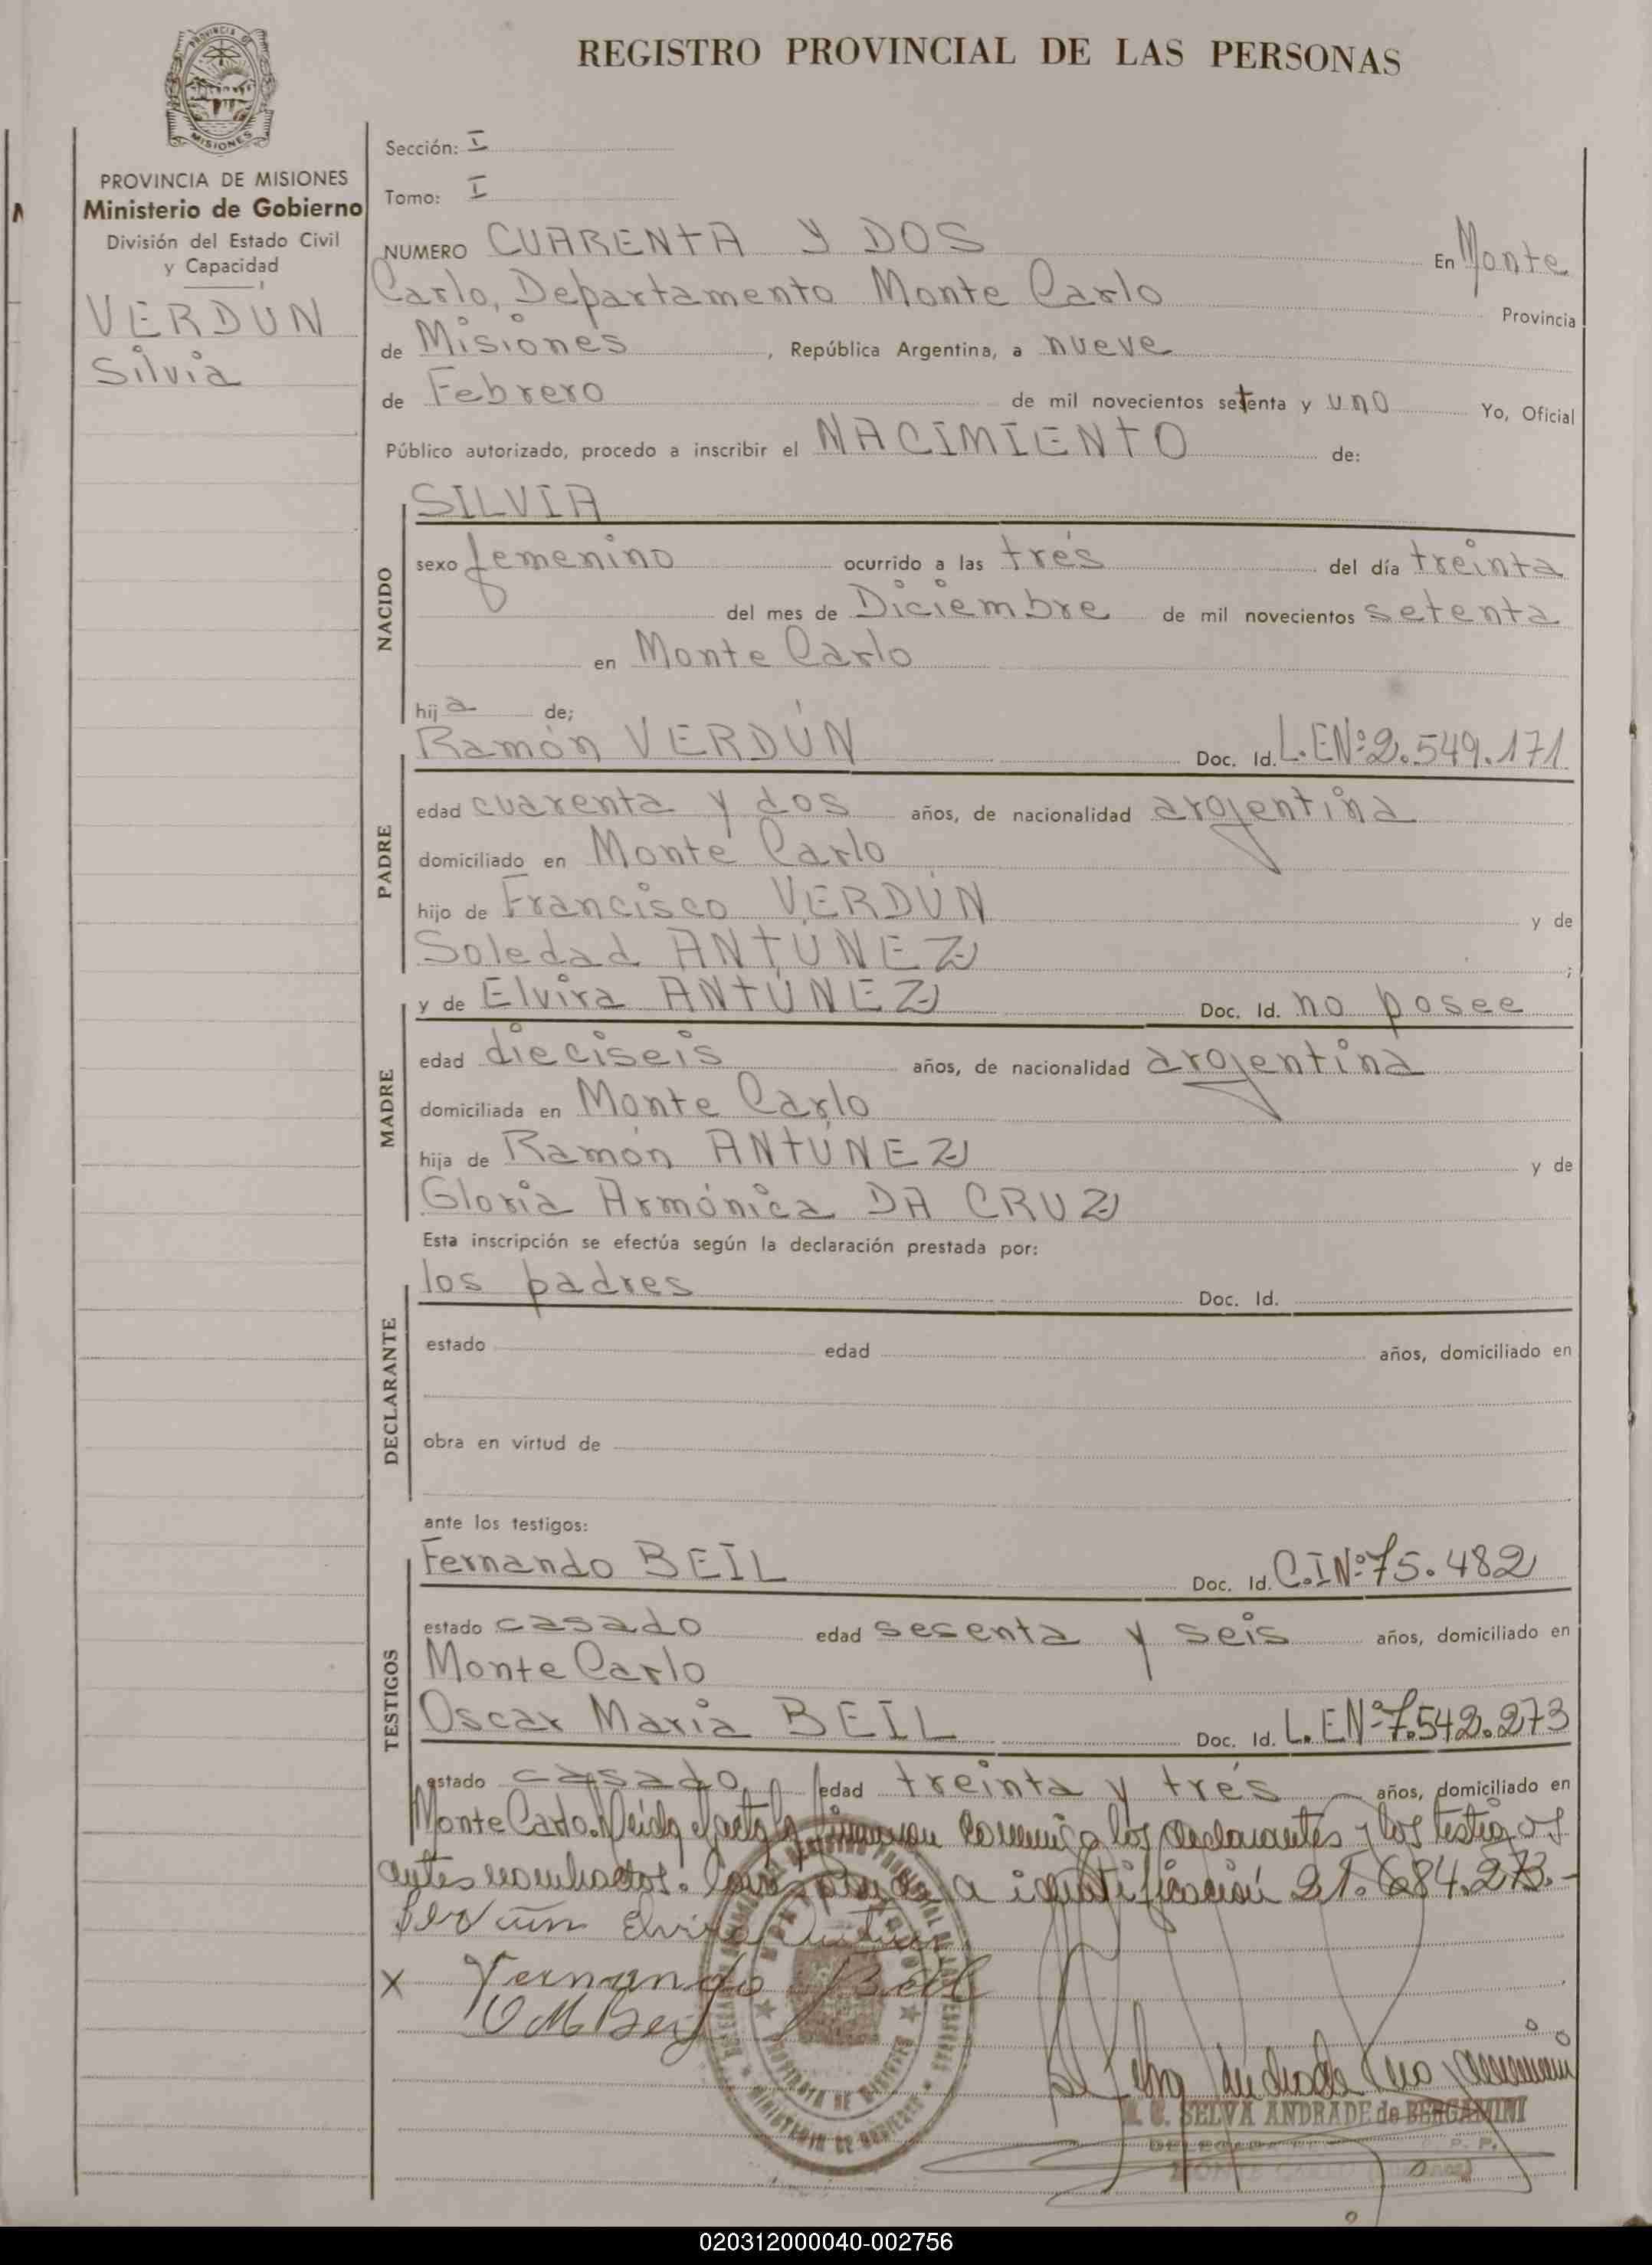 PROVINCIA DE
MISIONES
REGISTRO PROVINCIAL DE LAS PERSONAS
PROVINCIA DE MISIONES
Ministerio de Gobierno
División del Estado Civil
y Capacidad
VERDUN
Silvia
Sección: I
Tomo: I
NUMERO CUARENTA Y DOS En Monte
Carlo, Departamento Monte Carlo Provincia
de Misiones, República Argentina, a nueve
de Febrero de mil novecientos setenta y uno Yo, Oficial
Público autorizado, procedo a inscribir el NACIMIENTO de:
NACIDO
SILVIA
sexo femenino ocurrido a las tres del día treinta
del mes de Diciembre de mil novecientos setenta
en Monte Carlo
hija de;
PADRE
Ramón VERDÚN Doc. Id. L.E.Nº 2.549.171
edad cuarenta y dos años, de nacionalidad argentina
domiciliado en Monte Carlo
hijo de Francisco VERDÚN y de
Soledad ANTÚNEZ ;
MADRE
y de Elvira ANTÚNEZ Doc. Id. no posee
edad dieciseis años, de nacionalidad argentina
domiciliada en Monte Carlo
hija de Ramón ANTÚNEZ y de
Gloria Armónica DA CRUZ
Esta inscripción se efectúa según la declaración prestada por:
DECLARANTE
los padres Doc. Id.
estado edad años, domiciliado en
obra en virtud de
ante los testigos:
TESTIGOS
Fernando BEIL Doc. Id. C.I.Nº 75.482
estado casado edad sesenta y seis años, domiciliado en
Monte Carlo
Oscar Maria BEIL Doc. Id. L.E.Nº 7.542.273
estado casado edad treinta y tres años, domiciliado en
Monte Carlo. Leida el acta la firmaron conmigo los declarantes y los testigos
antes nombrados. a identificación 21.684.273.-
Verdún Elvira
X Fernando Beil
O M Beil
SELVA ANDRADE de BERGAMINI
PROVINCIA DE MISIONES
MINISTERIO DE GOBIERNO
020312000040-002756